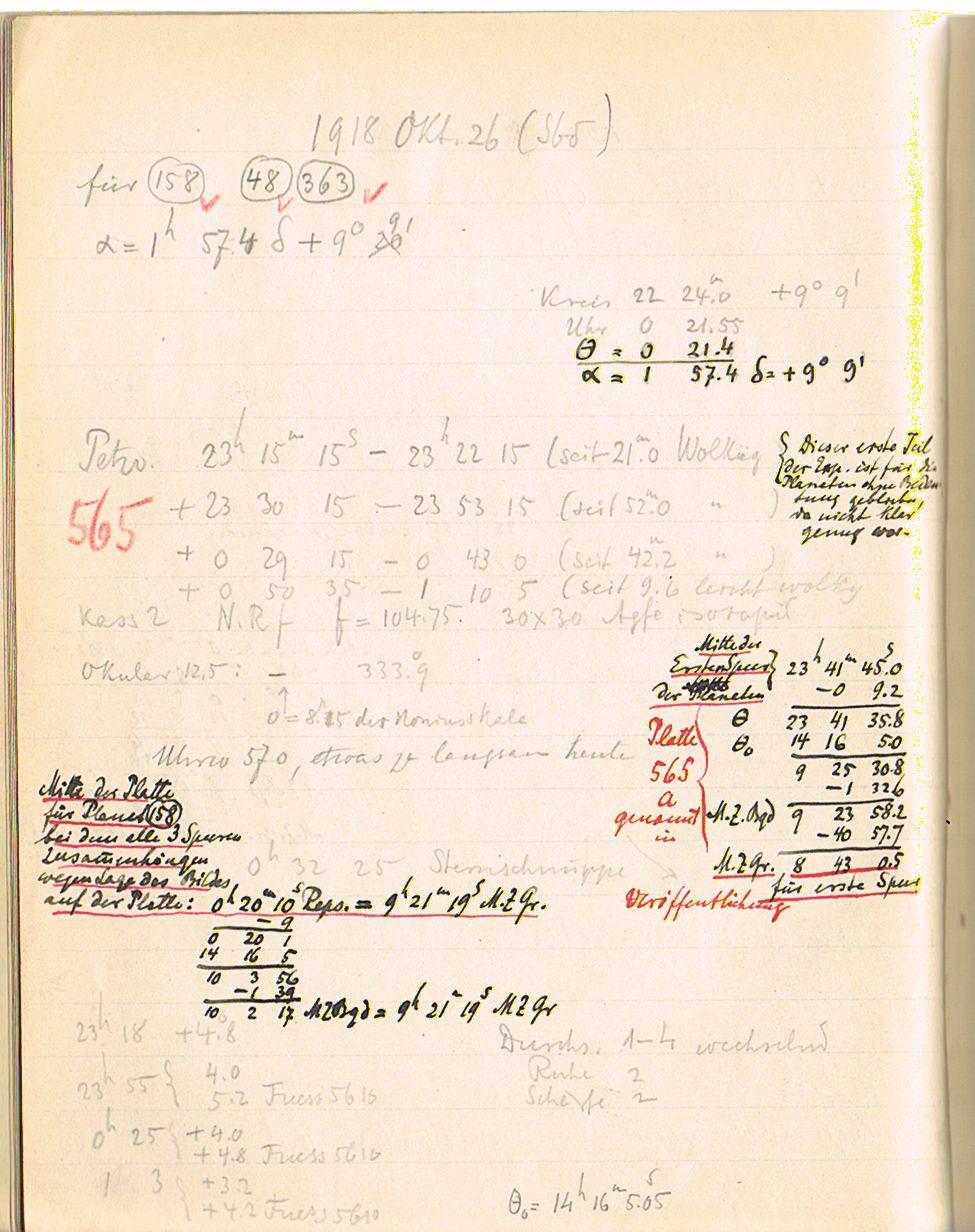 1918 Okt. 26 (565)
für 158 48 363
α = 1h 57.4 δ + 9° 9'
Kreis 22 24.m0 + 9° 9'
Uhr 0 21.55
θ = 0 21.4
α = 1 57.4 δ = + 9° 9'
Petzv. 23h 15m 15s – 23h 22 15 (seit 21.m0 Wolkig
Dieser erste Teil
der Exp. ist für die
Planeten ohne Bedeu-
tung geblieben,
da nicht klar
genug war.
565
+ 23 30 15 – 23 53 15 (seit 52.m0 " )
+ 0 29 15 – 0 43 0 (seit 42.m2 " )
+ 0 50 35 – 1 10 5 (seit 9.6 leicht wolkig
Kass 2 N.R f f = 104.75. 30x30 Agfa isorapid
Okular 12.5: – 333.°9
0 = 8.15 der Noniusskala
Uhr 570, etwas zu langsam heute
Mitte der
Ersten Spur
der Planeten
23h 41m 45.s0
–0 9.2
θ 23 41 35.8
θ₀ 14 16 5.0
9 25 30.8
–1 32.6
M.Z. Bgd 9 23 58.2
–40 57.7
M.Z Gr. 8 43 0.5
für erste Spur
Platte
565
a
genannt
in
Veröffentlichung
Mitte der Platte
für Planet 158
bei dem alle 3 Spuren
zusammenhängen
wegen Lage des Bildes
auf der Platte: 0h 20m 10s Reps. = 9h 21m 19s M.Z Gr.
0h 32 25 Sternschnuppe
– 9
0 20 1
14 16 5
10 3 56
–1 39
10 2 17 MZ Bgd = 9h 21m 19s MZ Gr
23h 18 +4.8
23h 55 { 4.0
5.2 Fuess 5616
0h 25 { +4.0
+4.8 Fuess 5616
1 3 { +3.2
+4.2 Fuess 5610
Durchs. 1–4 wechselnd
Ruhe 2
Schärfe 2
θ₀ = 14h 16m 5.s05